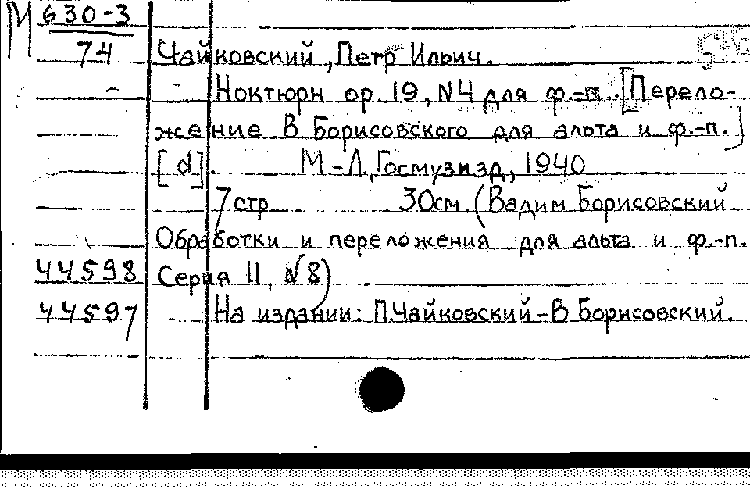 М 630-3
74 Чайковский, Петр Ильич.
Ноктюрн ор. 19, N4 для ф.-п. [Перело-
жение В Борисовского для альта и ф.-п.]
[d] М-Л, Госмузизд, 1940
7 стр 30см (Вадим Борисовский
Обработки и переложения для альта и ф.-п.
44598 Серия II, N8)
44597 На издании: П.Чайковский-В Борисовский.